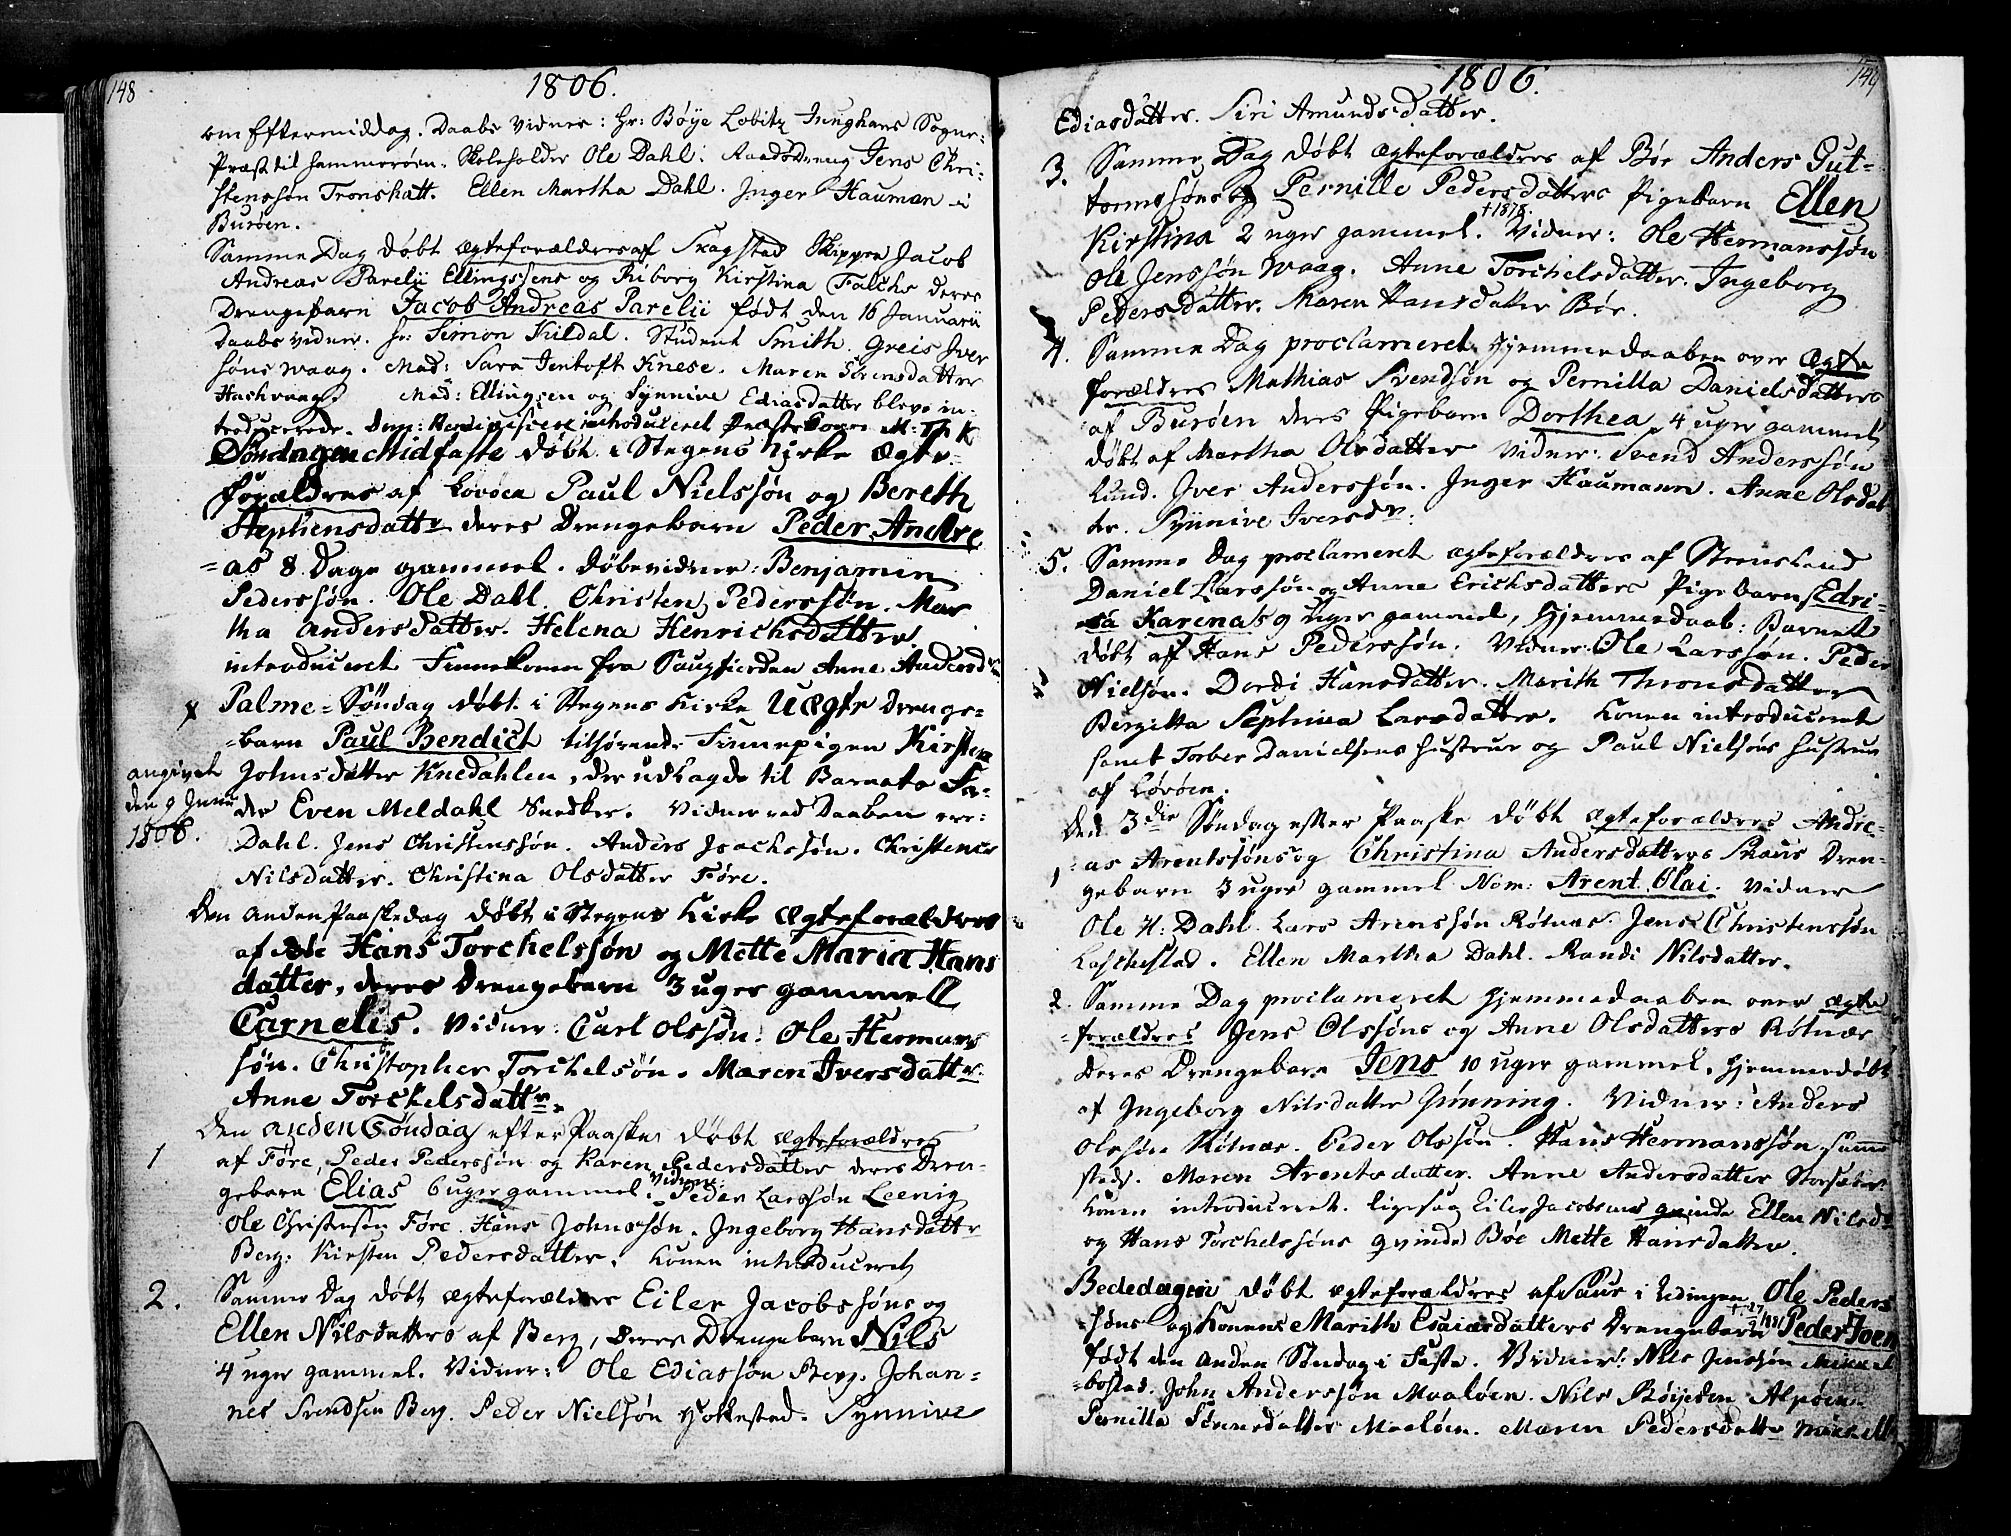 148
1806.
om Eftermiddag. Daabs Vidner: Hr: Bøye Lobitz Junghans Sogne-
Præst til Hammerøen. Skoleholder Ole Dahl. Jens Chri-
stenssøn Tronshatt. Ellen Martha Dahl. Inger Hauman i
Burøen.
Samme Dag døbt Ægteforældres af Skagstad Skipper Jacob
Andreas Parelii Ellingssens og Riborg Kirstina Falchs deres
Drengebarn Jacob Andreas Parelii født den 16 Januarii
Daabsvidner. Hr: Simon Kildal. Student Smith. Greis Iver
søns Waag. Mad: Sara Jentoft Knese. Maren Sørensdatter
Mad: Ellingsen og Synnive Ediasdatter bleve in-
troducerede. Dom: Reminiscere introduceret
Søndagen Midfaste døbt i Stegens Kirke Ægte-
forældres af Lovøen Paul Nielssøn og Bereth
Stephensdattr deres Drengebarn Peder Andre
=as 8 Dage gammel. Døbevidner: Benjamin
Pederssøn. Ole Dahl. Christen Pederssøn. Mar
tha Andersdatter. Helena Henrichsdatter
introduceret Finnekonen fra Saugfiorden Anne Andersdr
Palme=Søndag døbt i Stegens Kirke Uægte Drenge-
=barn Paul Bendict tilhørende Finnepigen Kirsten
angivet
den 9 Junii
1806.
Johnsdatter Knedahlen, der udlagde til Barnets Fa-
der Even Meldahl Snedker. Vidner ved Daaben ere:
Dahl. Jens Christenssøn. Anders Isachssøn. Christence
Nilsdatter. Christina Olsdatter Føre.
Den Anden Paaskedag døbt i Stegens Kirke Ægteforældres
af Hans Torchelssøn og Mette Maria Hans
datter, deres Drengebarn 3 uger gammell
Carnelis. Vidner: Carl Olssøn. Ole Hermans
søn. Christopher Torchelsøn. Maren Iversdattr
Anne Torchelsdattr.
Den anden Søndag efter Paaske døbt Ægteforældres
1 af Føre, Peder Pederssøn og Karen Pedersdatter deres Dren-
gebarn Elias 6 uger gammel. Vidner: Peder Larssøn Leenig
Ole Christensen Føre. Hans Johnssøn. Ingeborg Hansdatter
Berg. Kirsten Pedersdatter. Konen introduceret
2. Samme Dag døbt Ægteforældres Eiler Jacobssøns og
Ellen Nilsdatters af Berg, deres Drengebarn Nils
4 uger gammel. Vidner: Ole Ediassøn Berg. Johan-
nes Svendsen Berg. Peder Nielssøn Holkestad. Synnive
1806.
149
Ediasdatter. Siri Amundsdatter.
3. Samme Dag døbt Ægteforældres af Bøe Anders Gut-
tormssøns og Pernille Pedersdatters Pigebarn Ellen
†1878.
Kirstina 2 uger gammel. Vidner: Ole Hermanssøn
Ole Jenssøn Waag. Anne Torchelsdatter. Ingeborg
Pedersdatter. Maren Hansdatter Bøe.
4. Samme Dag proclameret Hjemmedaaben over Ægte
forældres Mathias Svendsøn og Pernilla Danielsdatters
af Burøen deres Pigebarn Dorthea 4 uger gammel
døbt af Martha Olsdatter Vidner: Svend Anderssøn
Lund. Iver Anderssøn. Inger Haumann. Anne Olsdat
ter. Synnive Iversdr.
5. Samme Dag proclameret Ægteforældres af
Daniel Larssøn og Anne Erichsdatters Pigebarn Edri-
sa Karena 9 uger gammel, Hjemmedaab: Barnet
døbt af Hans Pederssøn. Vidner: Ole Larssøn. Peder
Nielsøn. Dordi Hansdatter. Marith Thronsdatter
Bergitta Sephina Larsdatter. Konen introduceret
samt Torber Danielsens Hustrue og Paul Nielsøns Hustrue
af Lovøen.
Den 3die Søndag efter Paaske døbt Ægteforældres Andre-
1 as Arentssøns og Christina Andersdatters Skaus Dren-
gebarn 3 uger gammel Nom: Arent Olai. Vidner
Ole H: Dahl. Lars Arenssøn Rótnæs. Jens Christenssøn
Laschestad. Ellen Martha Dahl. Randi Nilsdatter.
2. Samme Dag proclameret Hjemmedaaben over Ægte
=forældres Jens Olssøns og Anne Olsdatters Rótnæs
deres Drengebarn Jens 10 uger gammel. Hjemmedøbt
af Ingeborg Nilsdatter Grønning. Vidner: Anders
Olssøn Rótnæs. Peder Olssøn. Hans Hermanssøn samme
steds. Maren Arentsdatter. Anne Andersdatter
Konen introduceret. ligesaa Eiler Jacobsens qvinde Ellen Nilsdr
og Hans Torchelssøns qvinde Bøe Mette Hansdatter.
Bededagen døbt Ægteforældres af Saur i Ledingen Ole Peders
=søns og Konens Marith Esaiasdatters Drengebarn Peder Joen
født den anden Søndag i Faste. Vidner: Nils Jenssøn
=bostad. John Anderssøn Maaløen. Nils Alpøen
Pernilla Maaløen. Maren Pedersdattr